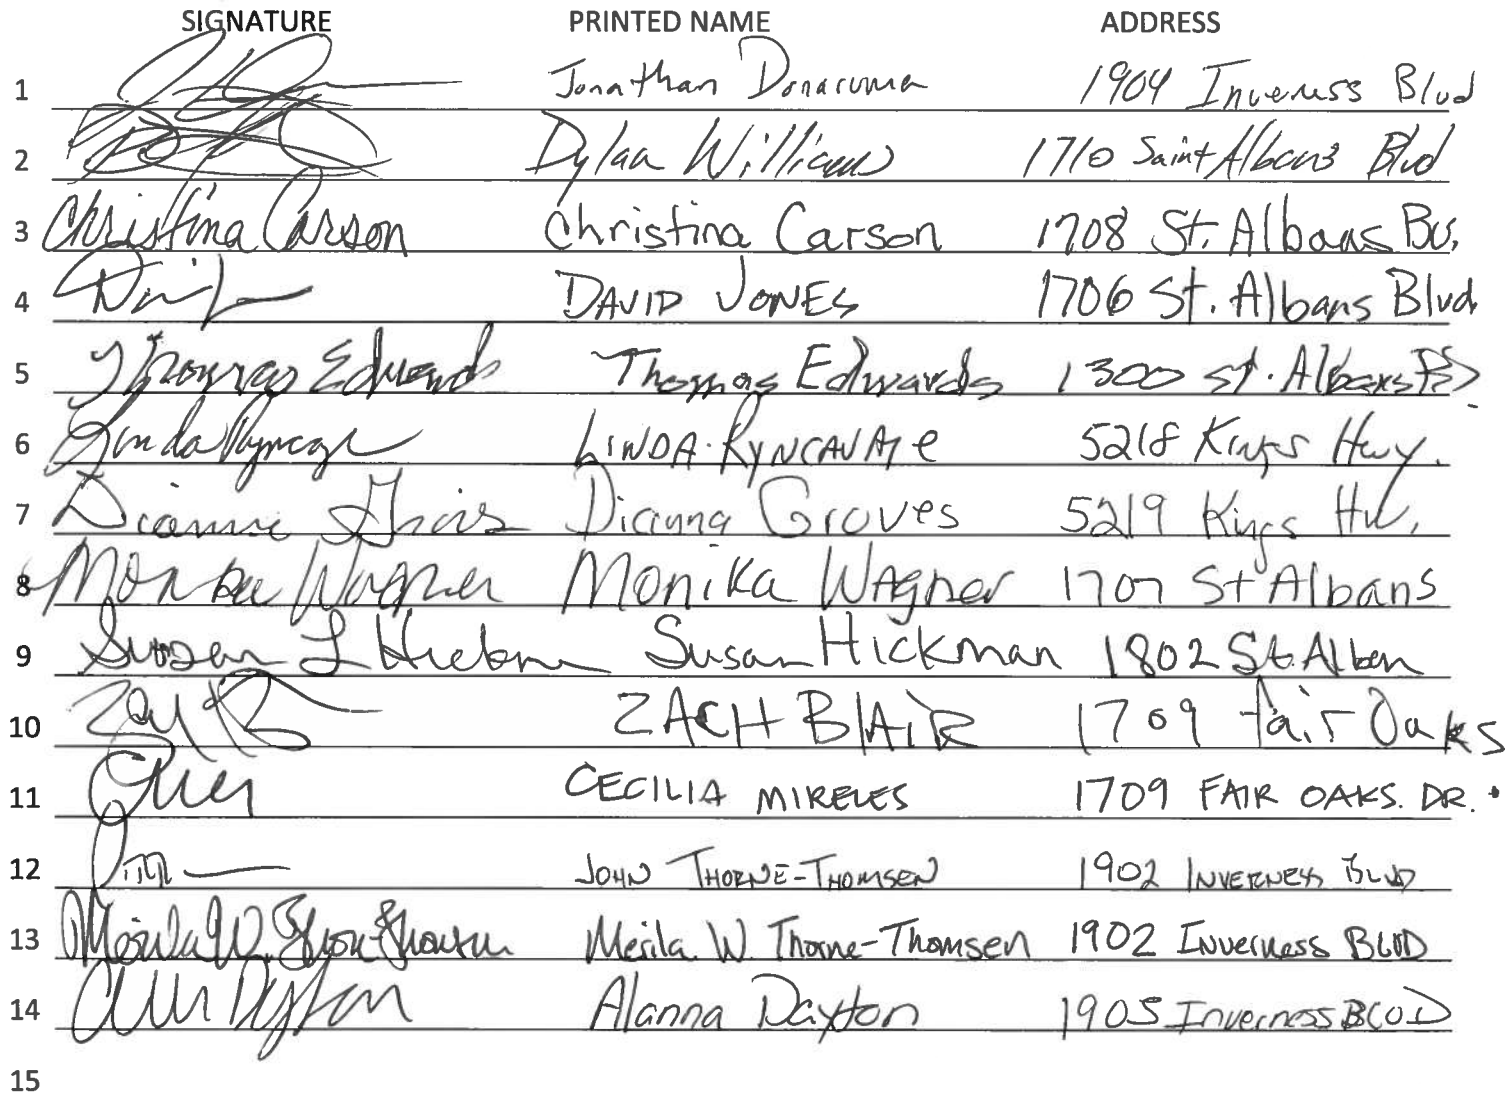 SIGNATURE PRINTED NAME ADDRESS
1 Jonathan Donacuma 1904 Inverness Blvd
2 Dylan Williams 1710 Saint Albans Blvd
3 Christina Carson Christina Carson 1708 St. Albans Bv.
4 DAVID JONES 1706 St. Albans Blvd
5 Thomas Edwards Thomas Edwards 1300 St. Albans
6 Linda LINDA RYNCAVAGE 5218 Kings Hwy.
7 Dianna Groves Dianna Groves 5219 Kings Hw.
8 Monika Wagner Monika WAgner 1707 St Albans
9 Susan L Hickman Susan Hickman 1802 St. Alban
10 ZACH BlAiR 1709 fair Oaks
11 CECILIA MIRELES 1709 FAIR OAKS. DR.
12 JOHN THORNE-THOMSEN 1902 INVERNESS BLVD
13 Merila W. Thorne-Thomsen 1902 Inverness BLVD
14 Alanna Dayton 1905 Inverness BLVD
15